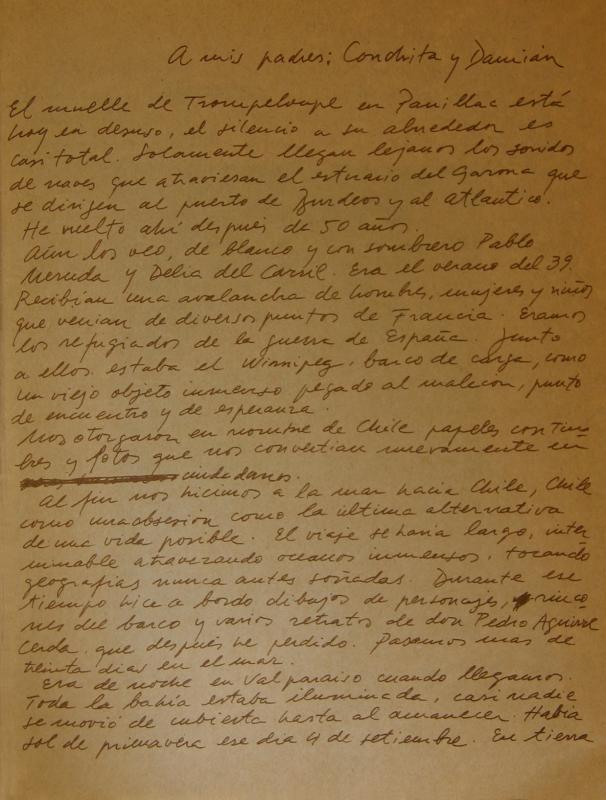 A mis padres: Conchita y Damián
El muelle de Trompeloupe en Pauillac está
hoy en desuso, el silencio a su alrededor es
casi total. Solamente llegan lejanos los sonidos
de naves que atraviesan el estuario del Garona que
se dirigen al puerto de Burdeos y al atlantico.
He vuelto ahí después de 50 años.
Aún los veo, de blanco y con sombrero Pablo
Neruda y Delia del Carril. Era el verano del 39.
Recibían una avalancha de hombres, mujeres y niños
que venian de diversos puntos de Francia. Eramos
los refugiados de la guerra de España. Junto
a ellos estaba el Winnipeg, barco de carga, como
un viejo objeto inmenso pegado al malecon, punto
de encuentro y de esperanza.
Nos otorgaron en nombre de Chile papeles con tim-
bres y fotos que nos convertian nuevamente en
ciudadanos.
Al fin nos hicimos a la mar hacia Chile, Chile
como una obsesión como la última alternativa
de una vida posible. El viaje se haria largo, inter
minable atravezando oceanos inmensos, tocando
geografias nunca antes soñadas. Durante ese
tiempo hice a bordo dibujos de personajes, rinco
nes del barco y varios retratos de don Pedro Aguirre
Cerda, que después he perdido. Pasamos mas de
treinta dias en el mar.
Era de noche en Valparaiso cuando llegamos.
Toda la bahía estaba iluminada, casi nadie
se movió de cubierta hasta al amanecer. Habia
sol de primavera ese dia 4 de setiembre. En tierra